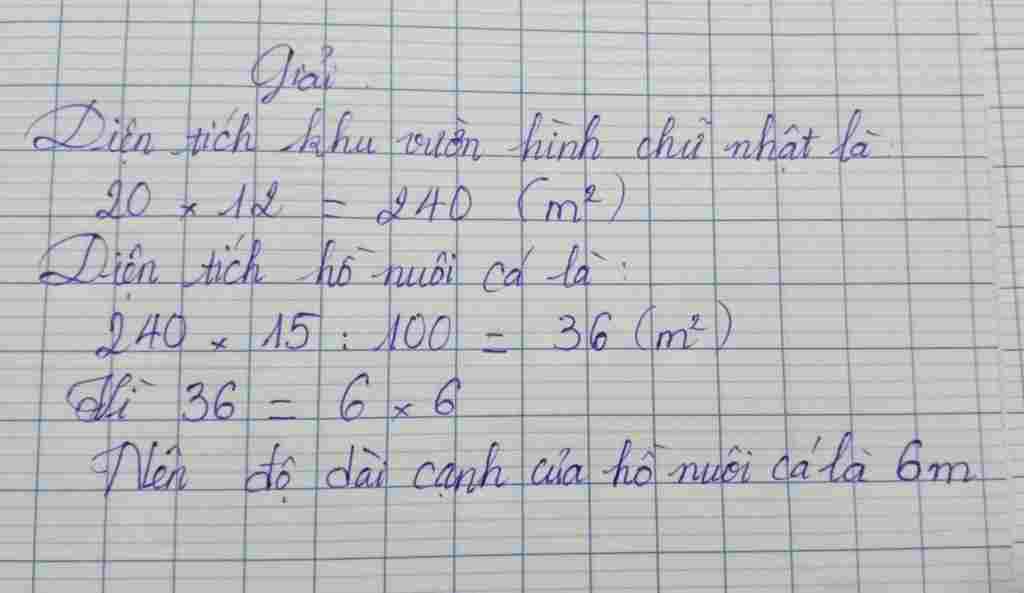 Giải
Diện tích khu vườn hình chữ nhật là
20 × 12 = 240 (m²)
Diện tích hồ nuôi cá là:
240 × 15 : 100 = 36 (m²)
Vì 36 = 6 × 6
Nên độ dài cạnh của hồ nuôi cá là 6m